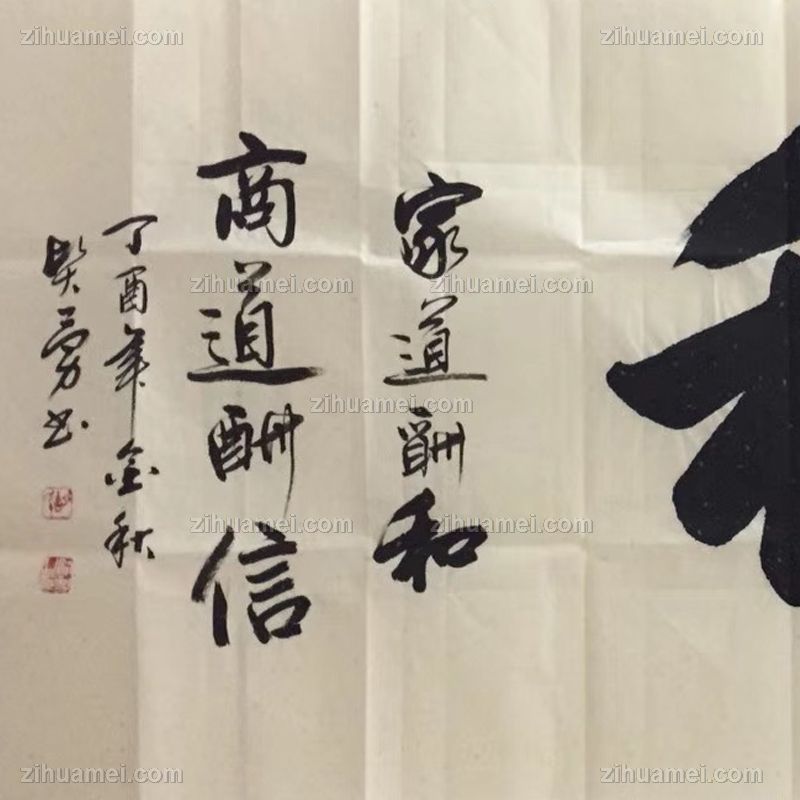 家道酬和
商道酬信
丁酉年金秋
勇书
zihuamei.com
zihuamei.com
zihuamei.com
zihuamei.com
zihuamei.com
zihuamei.com
zihuamei.com
zihuamei.com
zihuamei.com
zihuamei.com
zihuamei.com
zihuamei.com